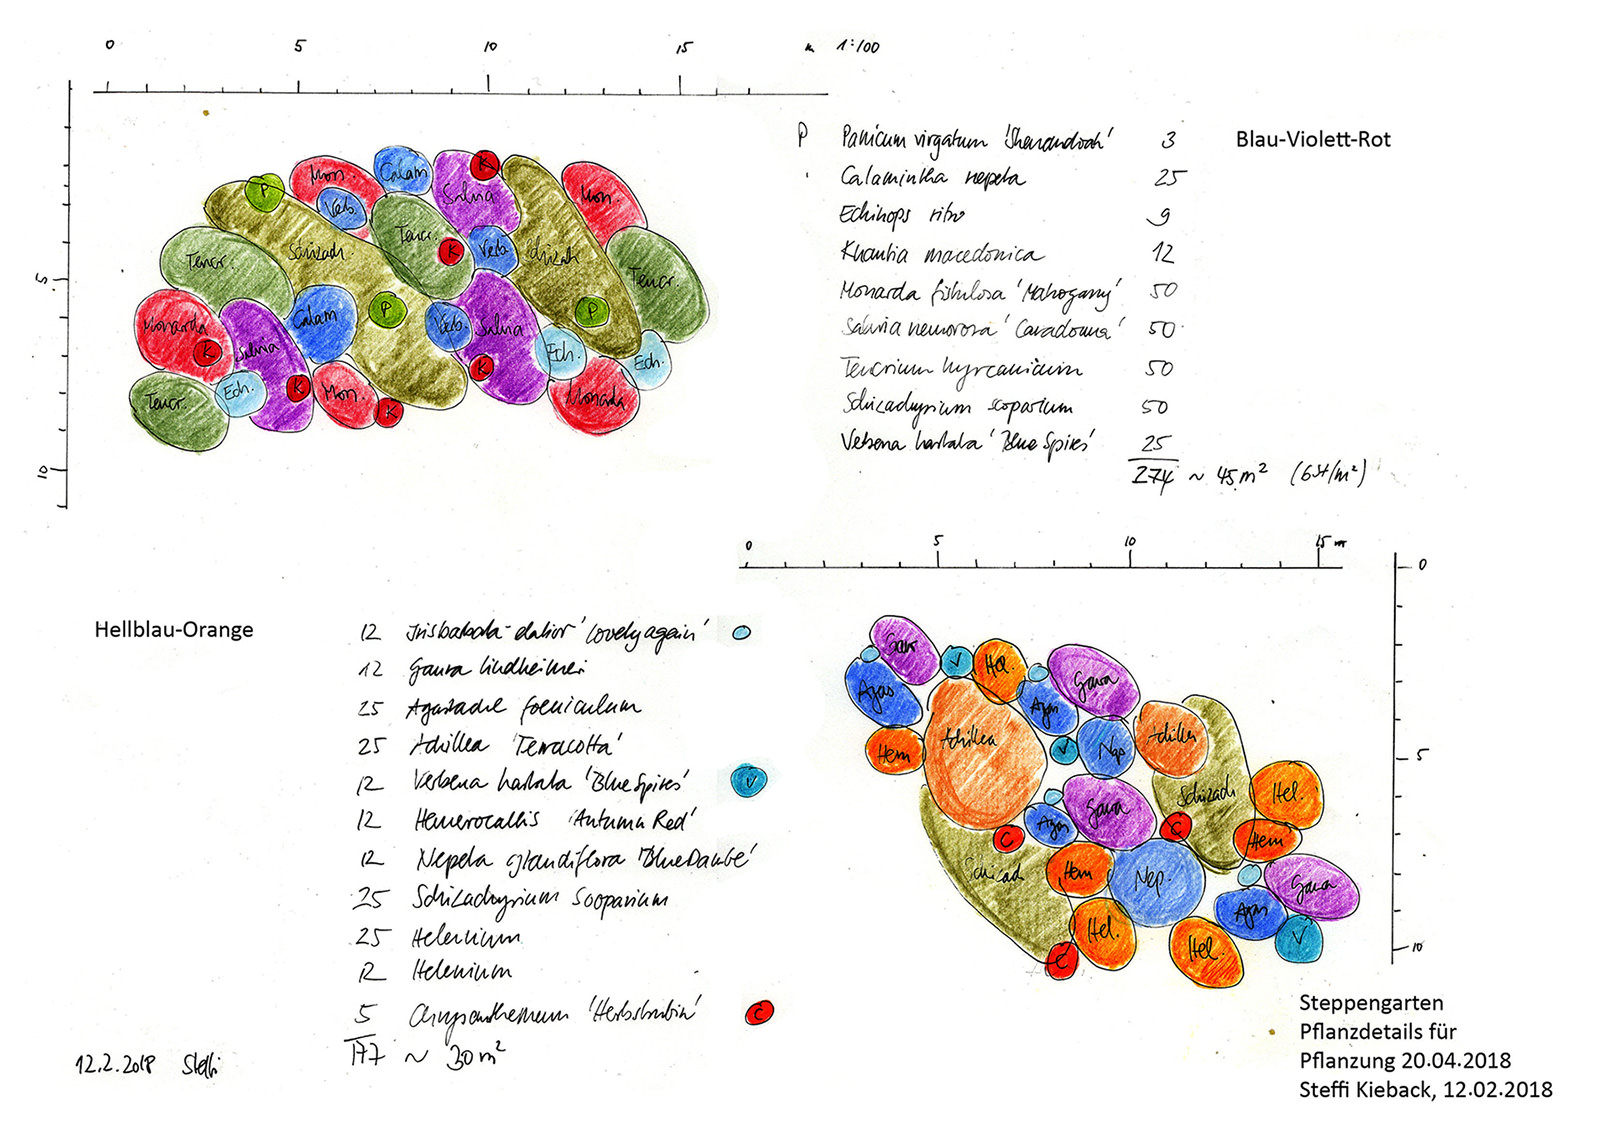 0 5 10 15 m 1:100
5
10
Mon.
Calam
K
Salvia
Mon.
P
Verb.
Teucr.
K
Verb.
Schizach.
Schizach
Teucr.
Teucr.
Calam
P
Verb.
Salvia
P
Monarda
K
Salvia
Ech.
Ech.
K
Teucr.
Ech.
K
Mon.
K
Monarda
P Panicum virgatum 'Shenandoah' 3
Blau-Violett-Rot
Calamintha nepeta 25
Echinops ritro 9
Knautia macedonica 12
Monarda fistulosa 'Mahogany' 50
Salvia nemorosa 'Caradonna' 50
Teucrium hyrcanicum 50
Schizachyrium scoparium 50
Verbena hastata 'Blue Spires' 25
274 ~ 45 m² (6 St/m²)
0 5 10 15 m
0
5
10
Gaur
V
Hel.
Gaura
Agas
Agas
Hem
Achillea
V
Nep
Achillea
Schizach
Hel.
Agas
Gaura
C
C
Hem
Schizach
Hem
Nep.
Gaura
Agas
V
Hel.
Hel.
C
Hellblau-Orange
12 Iris barbata-elatior 'Lovely again'
12 Gaura lindheimeri
25 Agastache foeniculum
25 Achillea 'Terracotta'
12 Verbena hastata 'Blue Spires' V
12 Hemerocallis 'Autumn Red'
12 Nepeta grandiflora 'Blue Danube'
25 Schizachyrium scoparium
25 Helenium
12 Helenium
5 Chrysanthemum 'Herbstrubin' C
177 ~ 30 m²
12.2.2018 Steffi
Steppengarten
Pflanzdetails für
Pflanzung 20.04.2018
Steffi Kieback, 12.02.2018